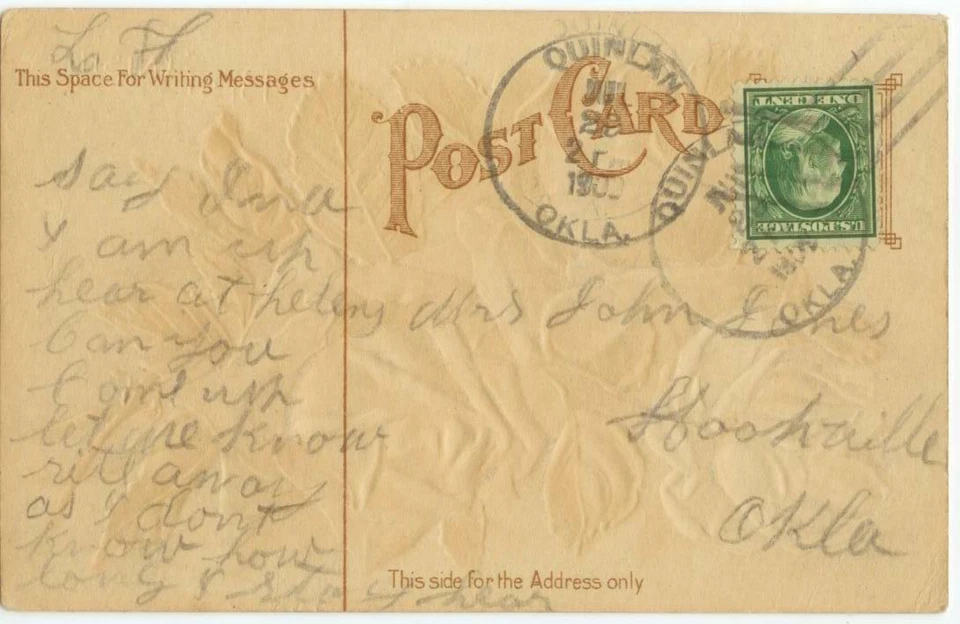 This Space For Writing Messages
say Ina
I am up
hear at helens
Can you
Come up
let me know
rite away
as I dont
know how
long I stay hear
POST CARD
QUINLAN
2
190
OKLA.
QUINLAN
OKLA.
U.S. POSTAGE
ONE CENT
Mrs John Jones
Okla
This side for the Address only